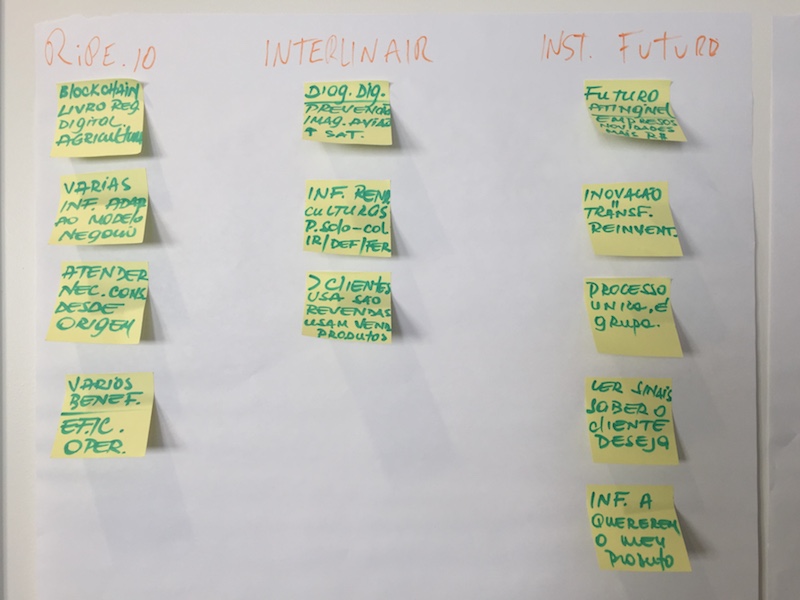 RIPE.IO
BLOCKCHAIN
LIVRO REG
DIGITAL.
AGRICULTURA
VARIAS
INF. ADAP
AO MODELO
NEGOCIO
ATENDER
NEC. CONS
DESDE
ORIGEM
VARIOS
BENEF.
EFIC.
OPER.
INTERLINAIR
DIOG. DIG.
PREVENÇÃO
IMAG. AVIÃO
+ SAT.
INF. REND
CULTUROS
P. SOLO-COL
IR/DEF/FER
> CLIENTES
USA SÃO
REVENDAS
USAM VEND
PRODUTOS
INST. FUTURO
FUTURO
ATINGIVEL
EMPRESOS
NOVIDADES
MAIS R$
INOVAÇÃO
=
TRANSF.
REINVENT.
PROCESSO
UNICA, É
GRUPA.
LER SINAIS
SABER O
CLIENTE
DESEJA
INF. A
QUEREREM
O MEU
PRODUTO